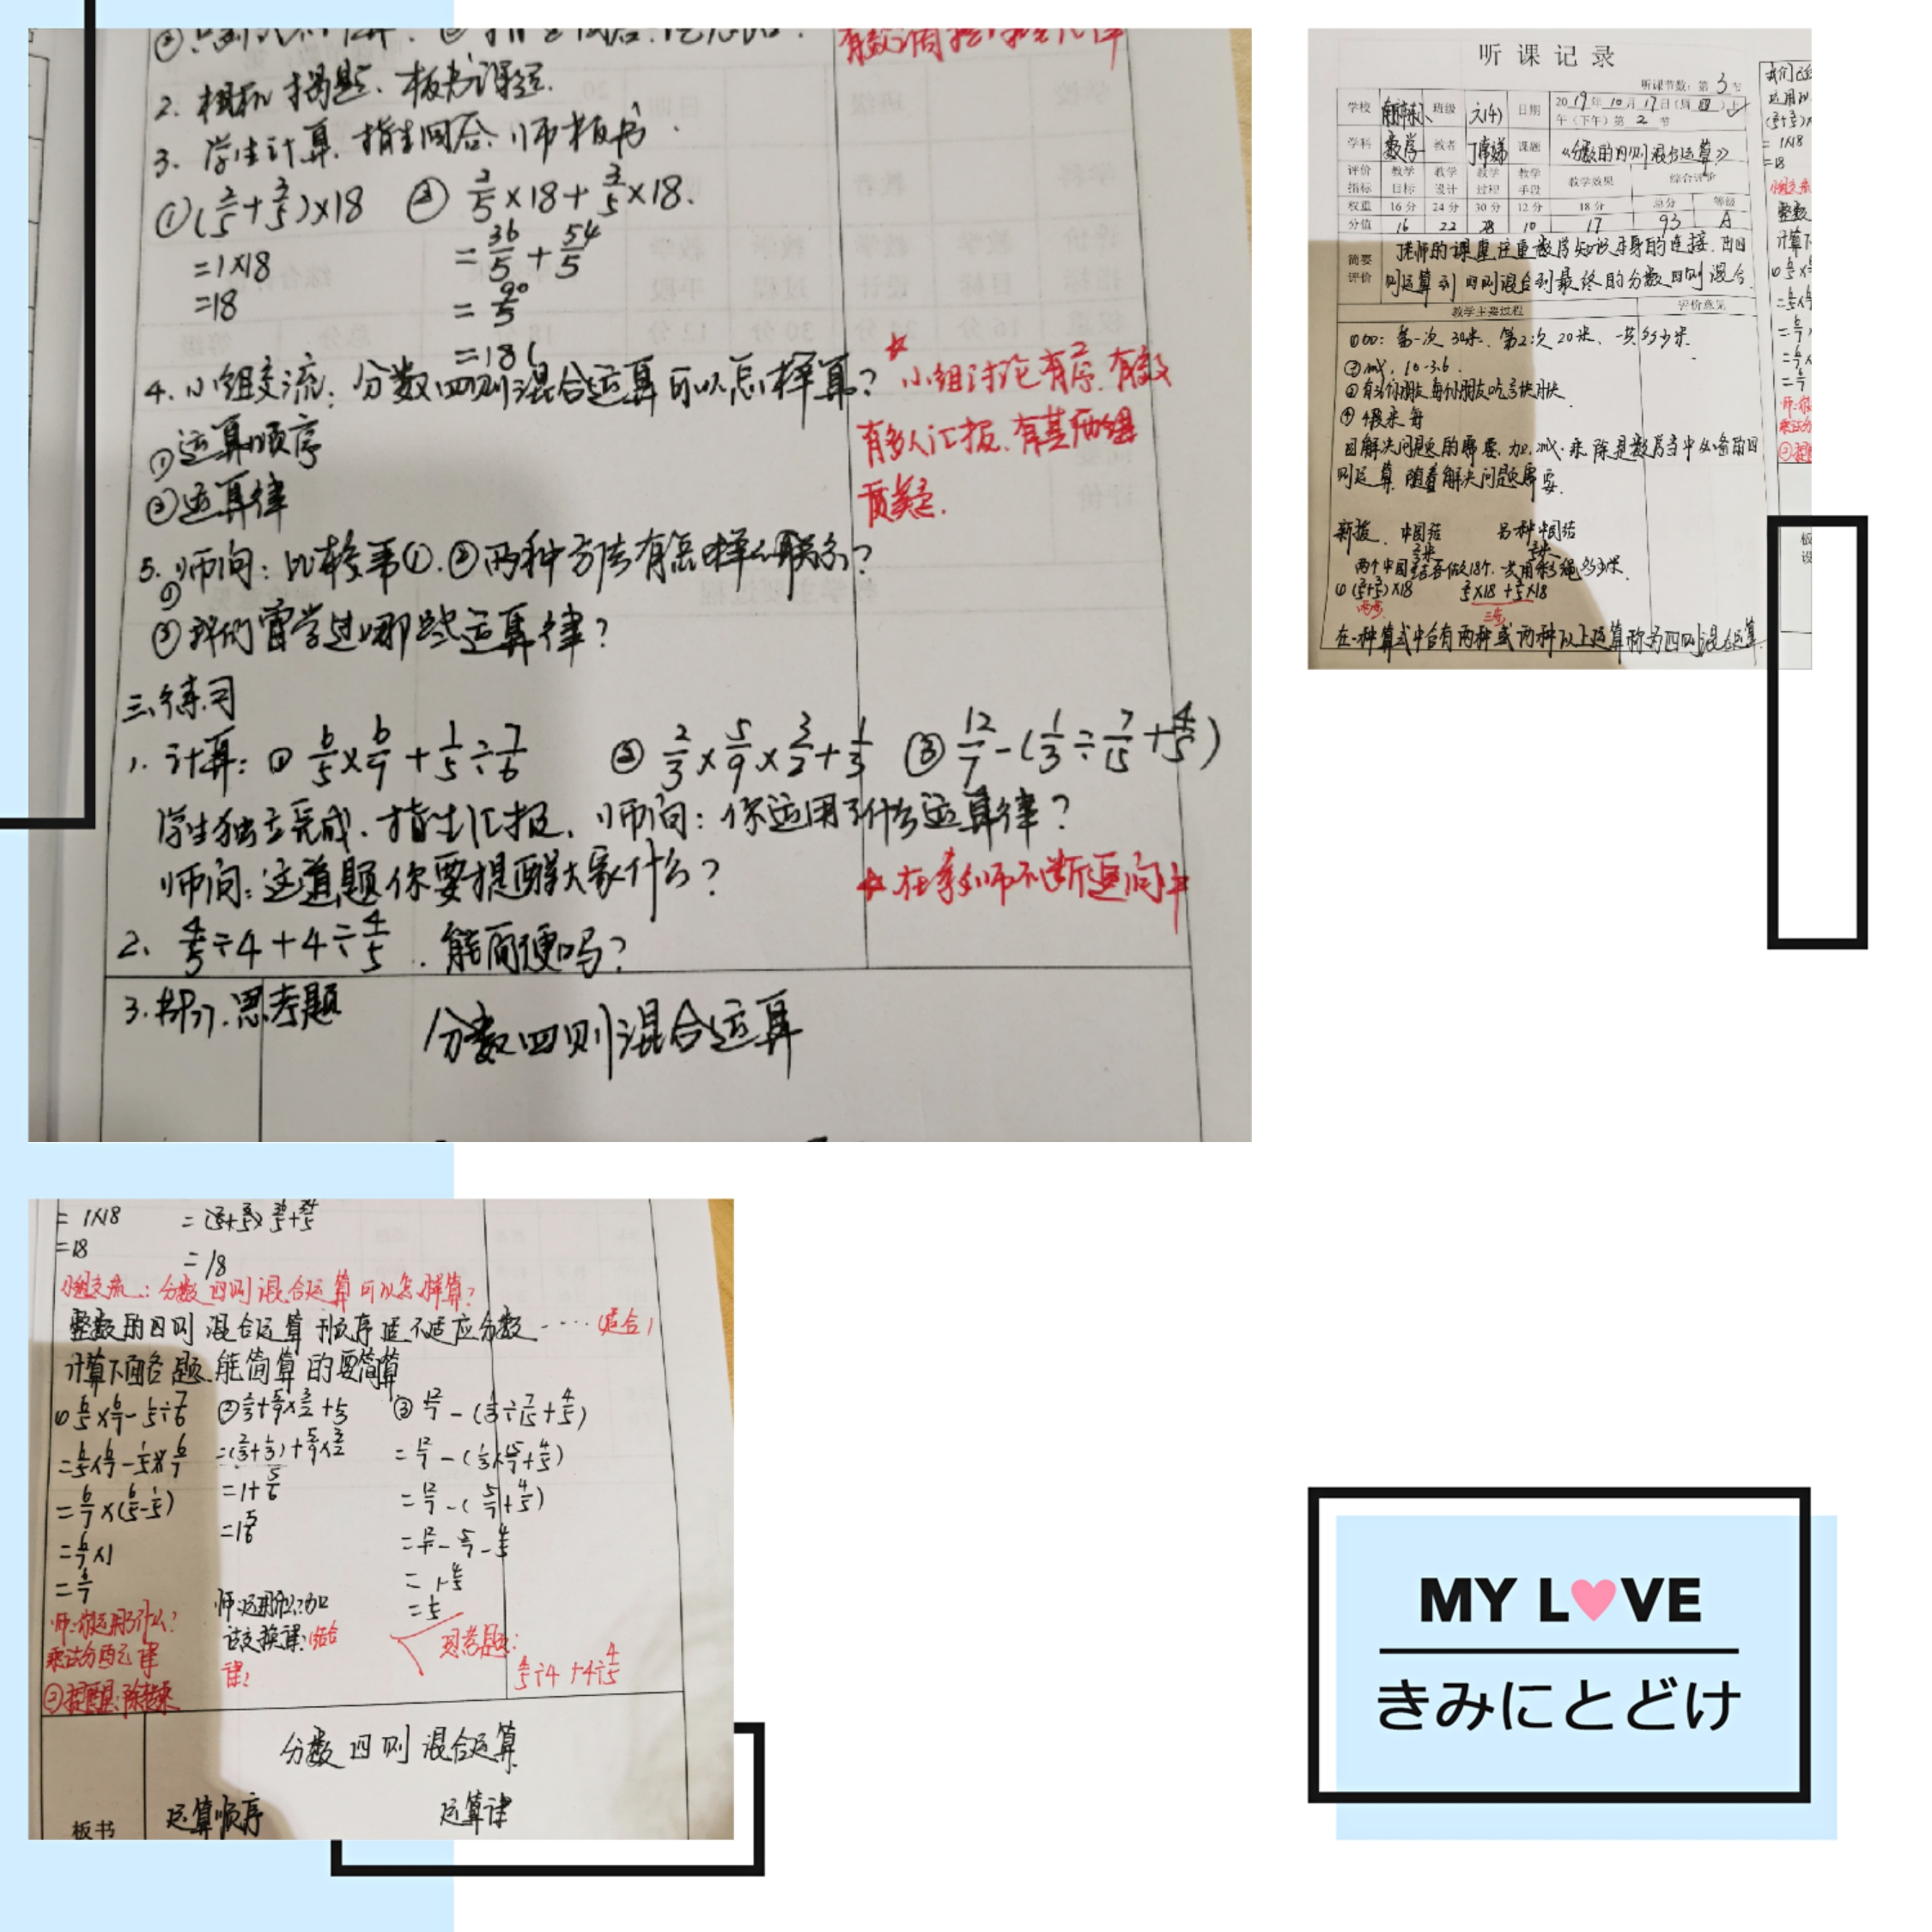 2. 相机揭题、板书课题.
3. 学生计算、指生回答、师板书.
①(2/5+3/5)×18 ② 2/5×18+3/5×18.
=1×18 =36/5+54/5
=18 =90/5
=18
4. 小组交流：分数四则混合运算可以怎样算？
①运算顺序
②运算律
☆小组讨论有序、有效
有多人汇报、有其他组
质疑.
5. 师问：比较第①.②两种方法有怎样的联系？
②我们曾学过哪些运算律？
三、练习
1. 计算：① 6/5×6/7+1/5÷7/6 ② 2/3×5/9×3/2+1/3 ③ 12/7-(1/3÷7/15+4/5)
学生独立完成、指生汇报、师问：你运用了什么运算律？
师问：这道题你要提醒大家什么？
☆在教师不断追问中
2、 4/5÷4+4÷4/5 . 能简便吗？
3. 思考题
分数四则混合运算
听课记录
听课节数：第 3 节
学校 班级 六(4) 日期 2019年10月17日(周四)上
午（下午）第 2 节
学科 数学 教者 课题 《分数的四则混合运算》
评价指标 教学目标 教学设计 教学过程 教学手段 教学效果 综合评价
权重 16分 24分 30分 12分 18分 总分 等级
分值 16 22 28 10 17 93 A
简要评价 老师的课重注重数学知识本身的连接、由四
则运算到四则混合到最终的分数四则混合.
教学主要过程 评价意见
第一次 30米、第2次 20米、一共多少米.
②减，10-3.6.
因解决问题的需要，加、减、乘、除是数学当中必备的四
则运算，随着解决问题需要.
新授、中国结 另一种中国结
两个中国结各做18个，一共用彩绳多少米.
① (2/5+3/5)×18 2/5×18+3/5×18
两步 三步
在一种算式中含有两种或两种以上运算称为四则混合运算
= 1×18
=18 = 18
小组交流：分数四则混合运算可以怎样算？
整数的四则混合运算顺序适不适应分数……(适合)
计算下面各题、能简算的要简算
① 6/5×6/7-1/5÷7/6 ② 2/3+5/9×3/2+1/3 ③ 12/7-(1/3÷7/15+4/5)
=6/5×6/7-1/5×6/7 =(2/3+1/3)+5/9×3/2 =12/7-(1/3×15/7+4/5)
=6/7×(6/5-1/5) =1+5/6 =12/7-(5/7+4/5)
=6/7×1 =1 5/6 =12/7-5/7-4/5
=6/7 =1-4/5
=1/5
师：你运用了什么？
乘法分配律
②提醒：除转乘
师：运用什么？加
法交换律；结合
律？
思考题：
4/5÷4+4÷4/5
分数四则混合运算
板书 运算顺序 运算律
MY L♥VE
きみにとどけ